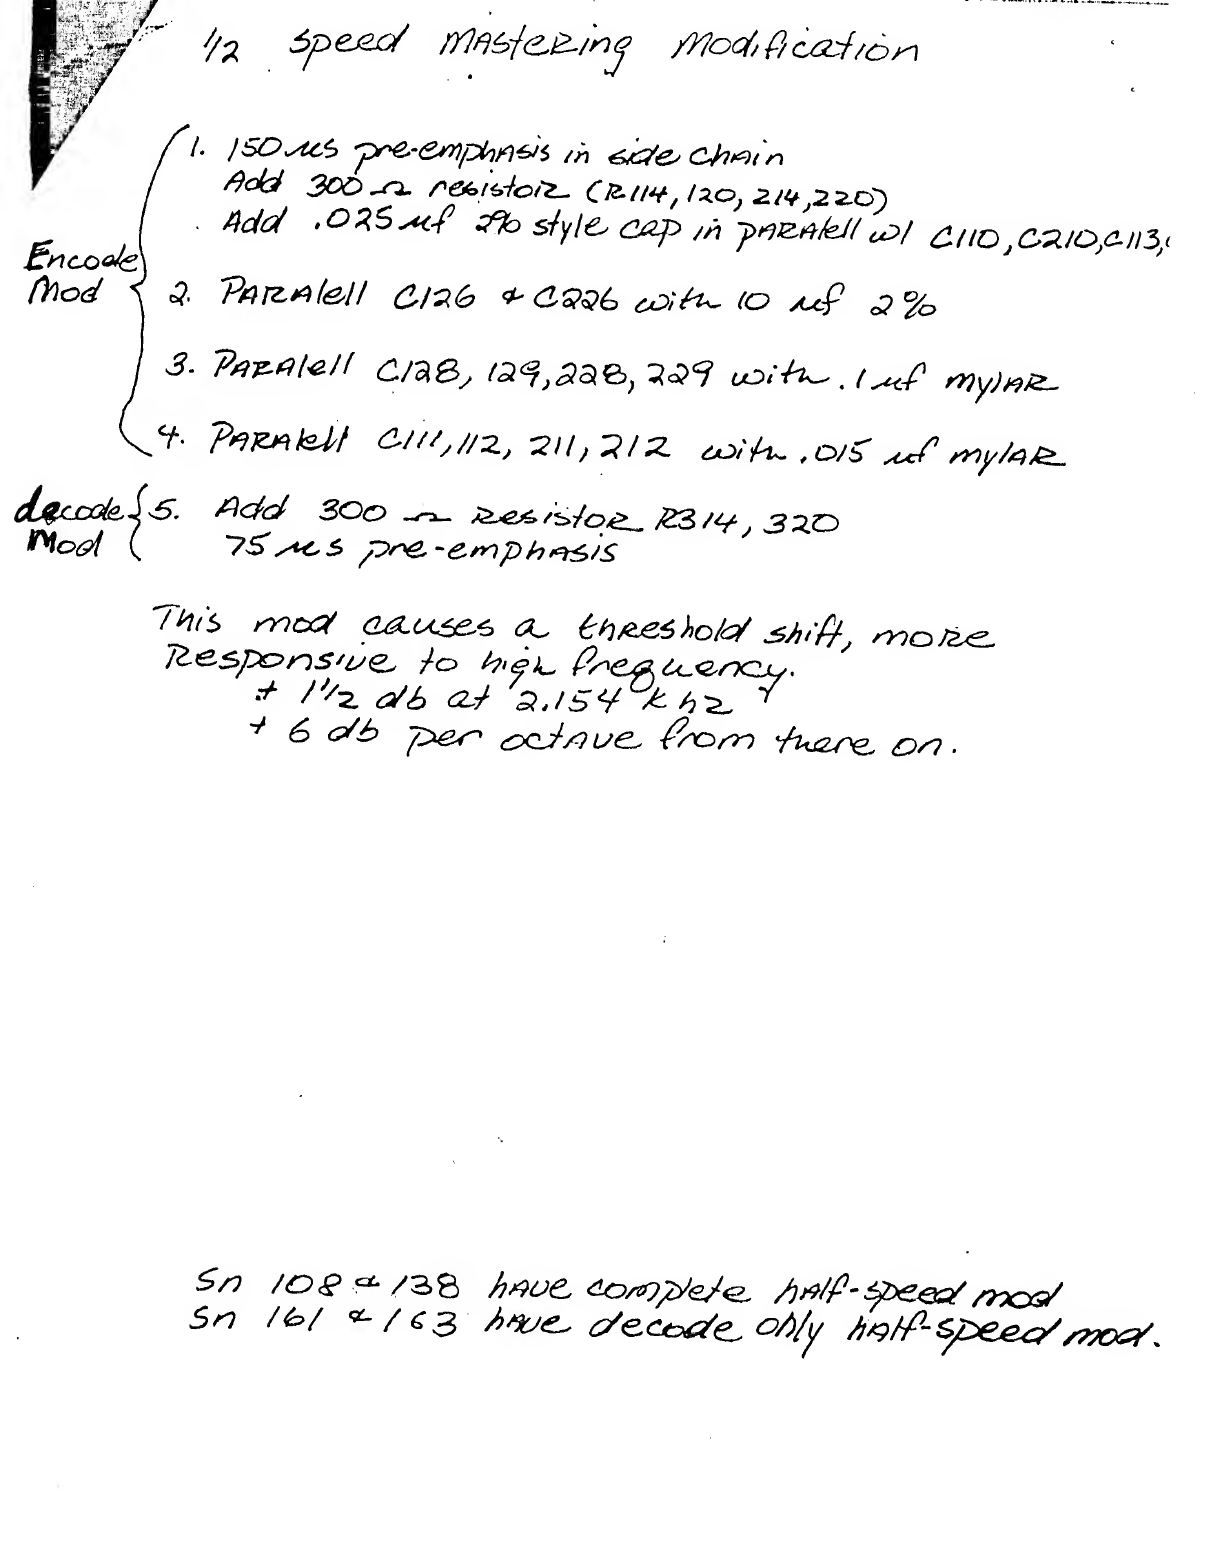 1/2 Speed Mastering Modification
1. 150 µs pre-emphasis in side chain
Add 300 Ω resistor (R114, 120, 214, 220)
Add .025 µf 2% style cap in paralell w/ C110, C210, C113,
Encode
Mod
2. Paralell C126 & C226 with 10 µf 2%
3. Paralell C128, 129, 228, 229 with .1 µf mylar
4. Paralell C111, 112, 211, 212 with .015 µf mylar
decode
Mod
5. Add 300 Ω Resistor R314, 320
75 µs pre-emphasis
This mod causes a threshold shift, more
Responsive to high frequency.
+ 1 1/2 db at 2.154 k hz
+ 6 db per octave from there on.
Sn 108 & 138 have complete half-speed mod
Sn 161 & 163 have decode only half-speed mod.